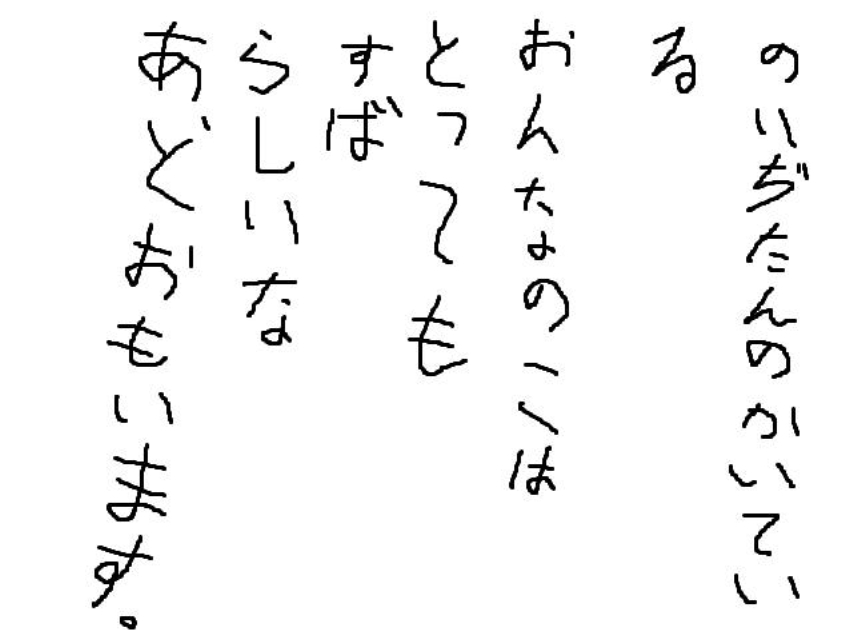 のいぢたんのかいてい
る
おんなのこは
とっても
すば
らしいな
あどおもいます。